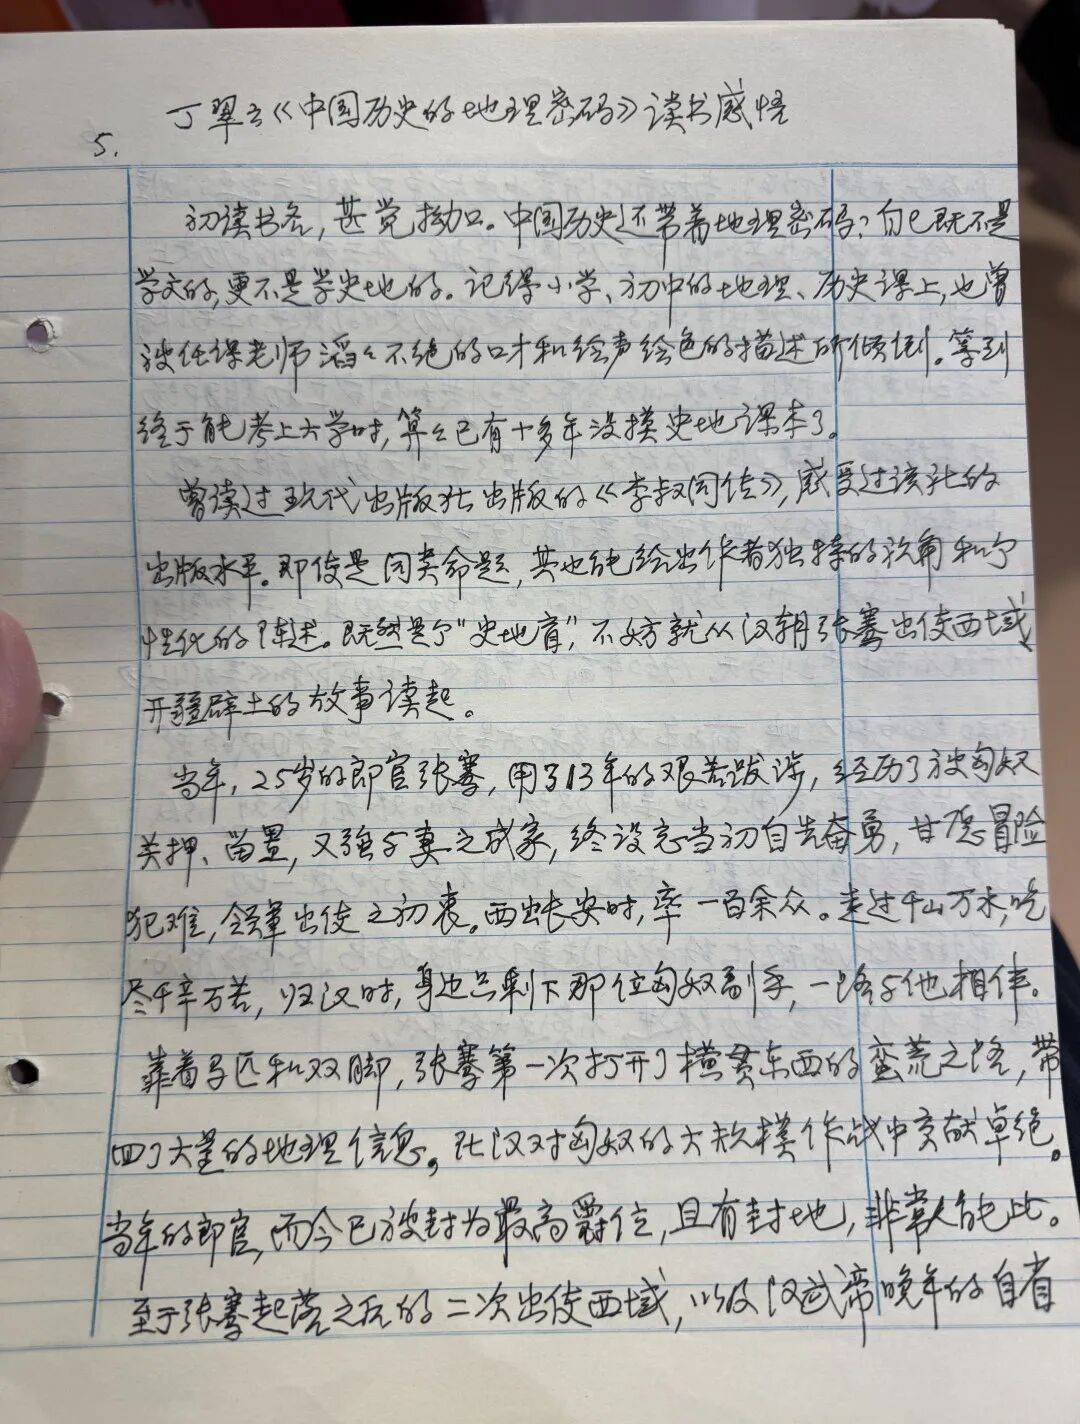 丁翠云《中国历史的地理密码》读书感悟
5.
初读书名，甚觉拗口。中国历史还带着地理密码？自己既不是
学文的，更不是学史地的。记得小学、初中的地理、历史课上，也曾
被任课老师滔々不绝的口才和绘声绘色的描述所倾倒。等到
终于能考上大学时，算々已有十多年没摸史地课本了。
曾读过现代出版社出版的《李叔同传》，感受过该社的
出版水平。即使是同类命题，其也能给出作者独特的视角和个
性化的陈述。既然是个“史地盲”，不妨就从汉朝张骞出使西域、
开疆辟土的故事读起。
当年，25岁的郎官张骞，用了13年的艰苦跋涉，经历了被匈奴
关押、留置，又强与妻之成家，终没忘当初自告奋勇，甘愿冒险
犯难，领军出使之初衷。西出长安时，率一百余众。走过千山万水，吃
尽千辛万苦，归汉时，身边只剩下那位匈奴副手，一路与他相伴。
靠着马匹和双脚，张骞第一次打开了横贯东西的蛮荒之路，带
回了大量的地理信息。在汉对匈奴的大规模作战中贡献卓绝。
当年的郎官，而今已被封为最高爵位，且有封地，非常人能比。
至于张骞起落之后的二次出使西域，以及汉武帝晚年的自省